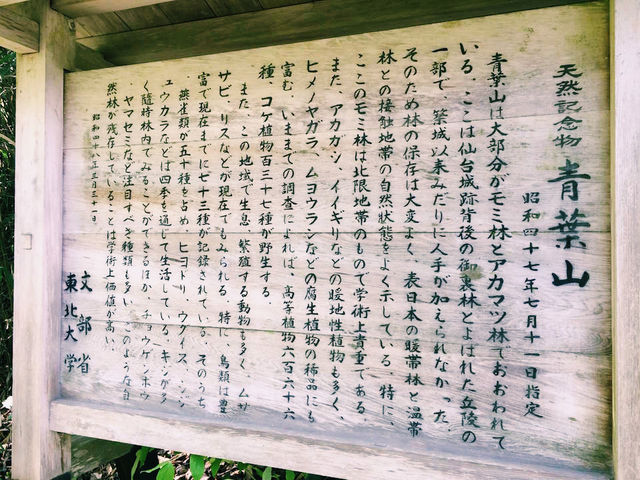 天然記念物 青葉山
昭和四十七年七月十一日指定
青葉山は大部分がモミ林とアカマツ林でおおわれて
いる。ここは仙台城跡背後の御裏林とよばれた丘陵の
一部で、築城以来みだりに人手が加えられなかった。
そのため林の保存は大変よく、表日本の暖帯林と温帯
林との接触地帯の自然状態をよく示している。特に、
ここのモミ林は北限地帯のもので学術上貴重である。
また、アカガシ、イイギリなどの暖地性植物も多く、
ヒメノヤガラ、ムヨウランなどの腐生植物の稀品にも
富む。いままでの調査によれば、高等植物六百六十六
種、コケ植物百三十七種が野生する。
また、この地域で生息、繁殖する動物も多く、ムサ
サビ、リスなどが現在でもみられる。特に、鳥類は豊
富で現在までに七十三種が記録されている。そのうち
燕雀類が五十種を占め、ヒヨドリ、ウグイス、シジ
ュウカラなどは四季を通じて生活している。キジが多
く随時林内でみることができるほか、チョウゲンボウ
、ヤマセミなど注目すべき種類も多い。このような自
然林が残存していることは学術上価値が高い。
昭和四十八年三月三十一日
文部省
東北大学